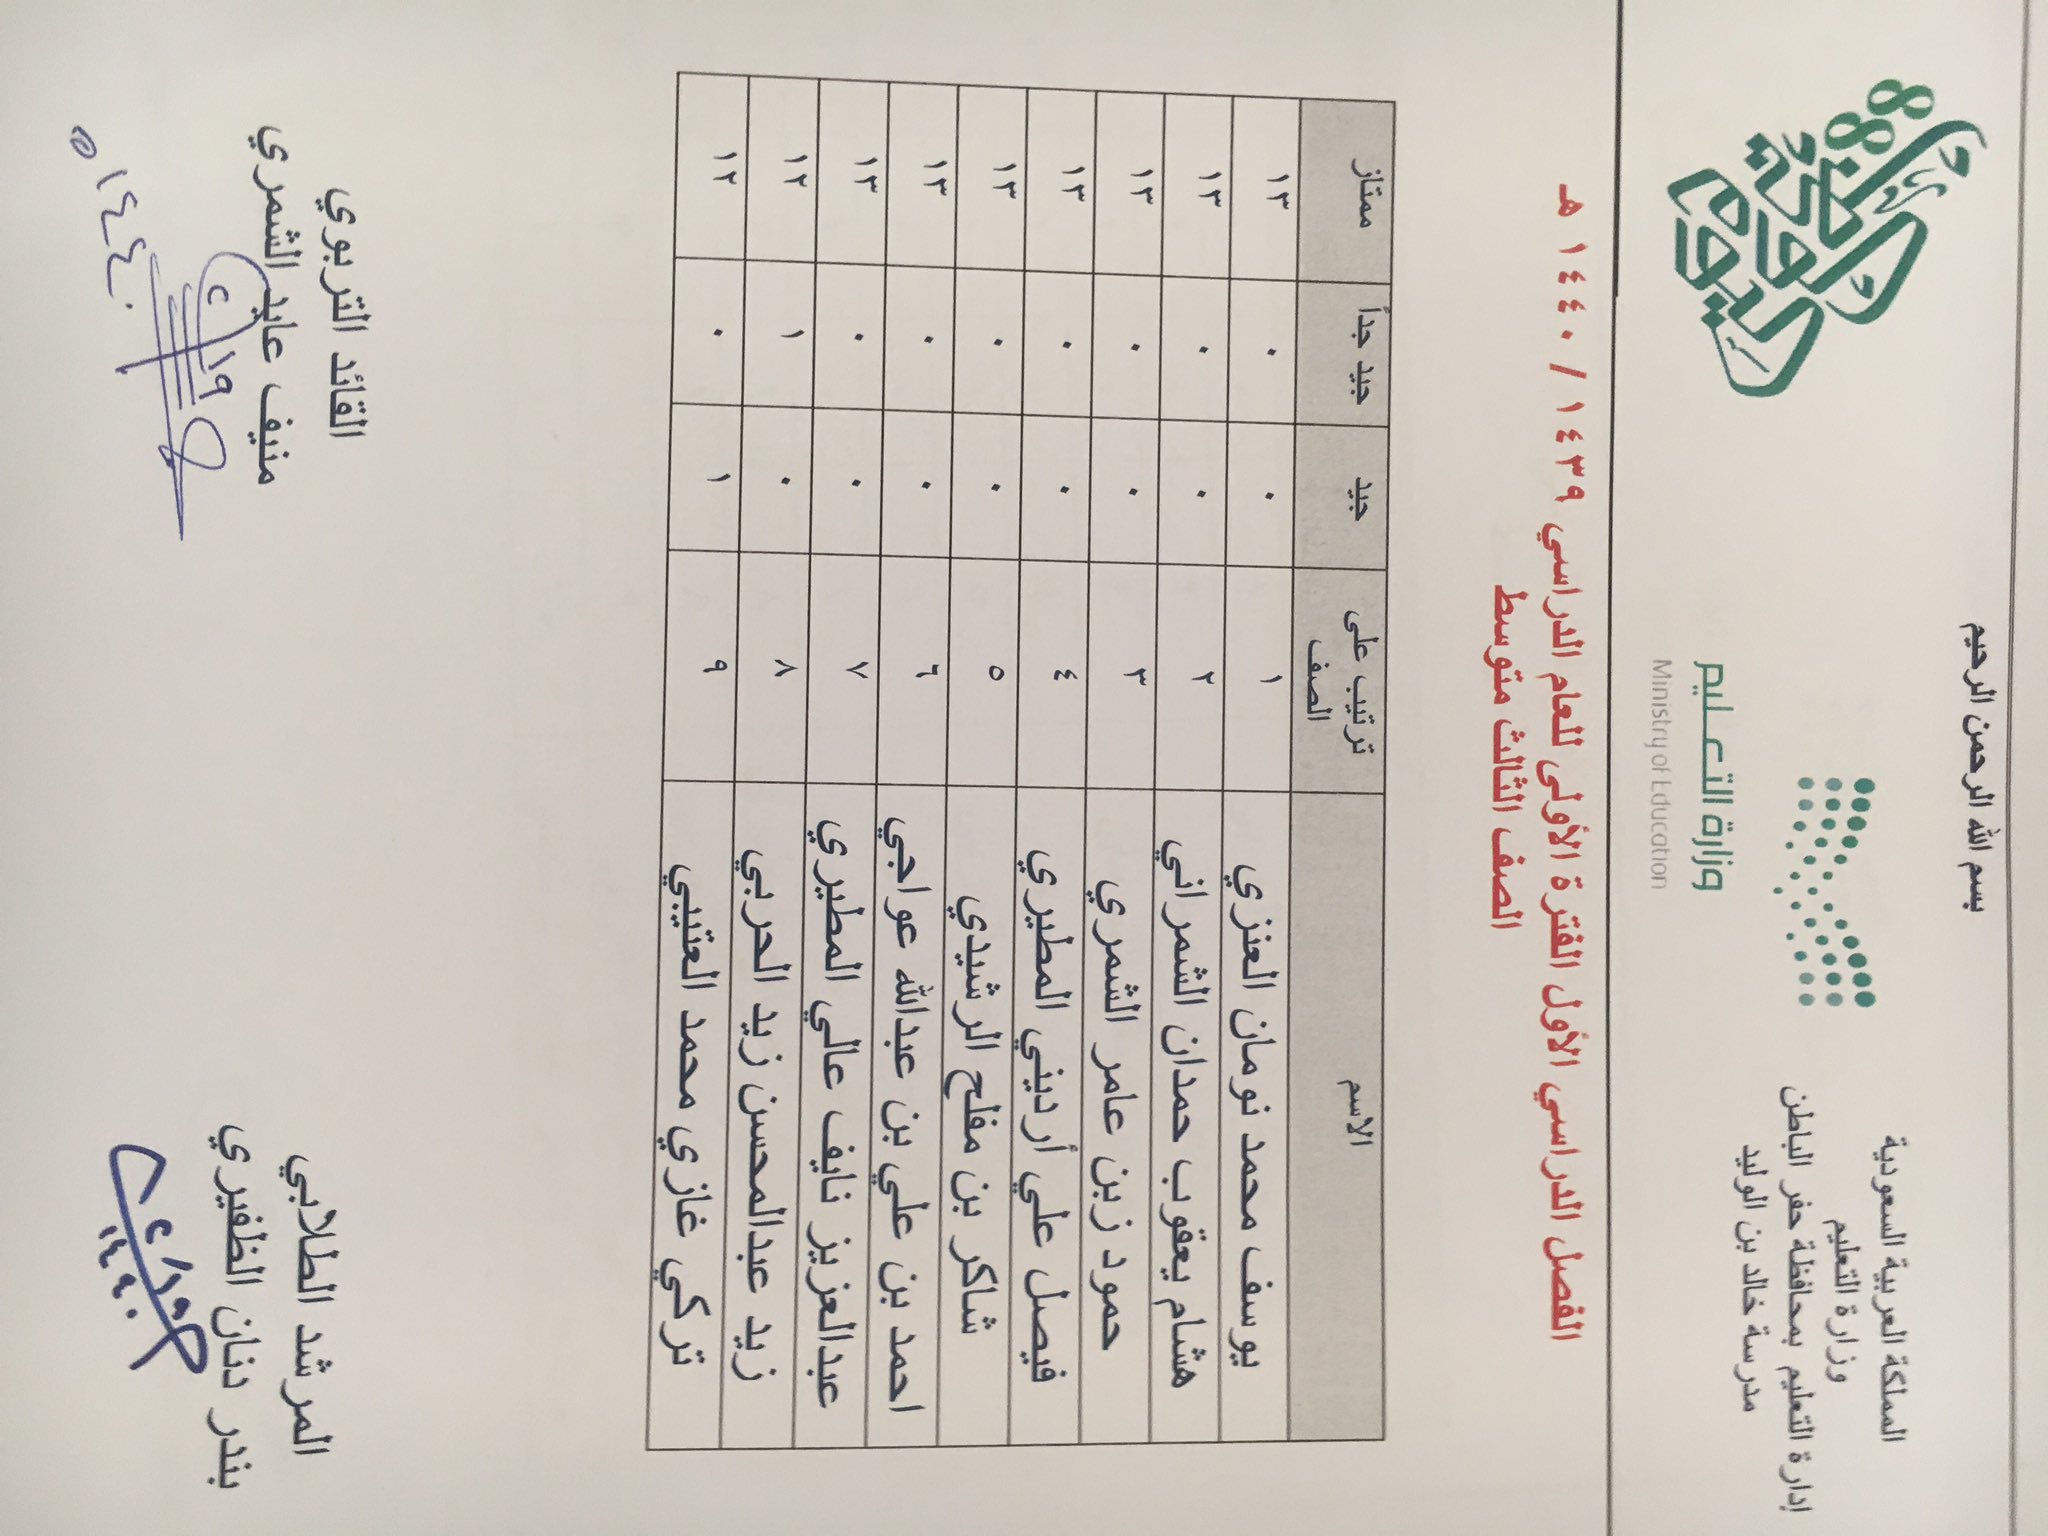 بسم الله الرحمن الرحيم
المملكة العربية السعودية
وزارة التعليم
إدارة التعليم بمحافظة حفر الباطن
مدرسة خالد بن الوليد
وزارة التعليم
Ministry of Education
88
الفصل الدراسي الأول الفترة الأولى للعام الدراسي ١٤٣٩ / ١٤٤٠ هـ
الصف الثالث متوسط
الاسم ترتيب على الصف جيد جيد جداً ممتاز
يوسف محمد نومان العنزي ١ ٠ ٠ ١٣
هشام يعقوب حمدان الشمراني ٢ ٠ ٠ ١٣
حمود زبن عامر الشمري ٣ ٠ ٠ ١٣
فيصل علي أرديني المطيري ٤ ٠ ٠ ١٣
شاكر بن مفلح الرشيدي ٥ ٠ ٠ ١٣
احمد بن علي بن عبدالله عواجي ٦ ٠ ٠ ١٣
عبدالعزيز نايف عالي المطيري ٧ ٠ ٠ ١٣
زيد عبدالمحسن زيد الحربي ٨ ٠ ١ ١٢
تركي غازي محمد العتيبي ٩ ١ ٠ ١٢
المرشد الطلابي القائد التربوي
بندر دنان الظفيري منيف عايد الشمري